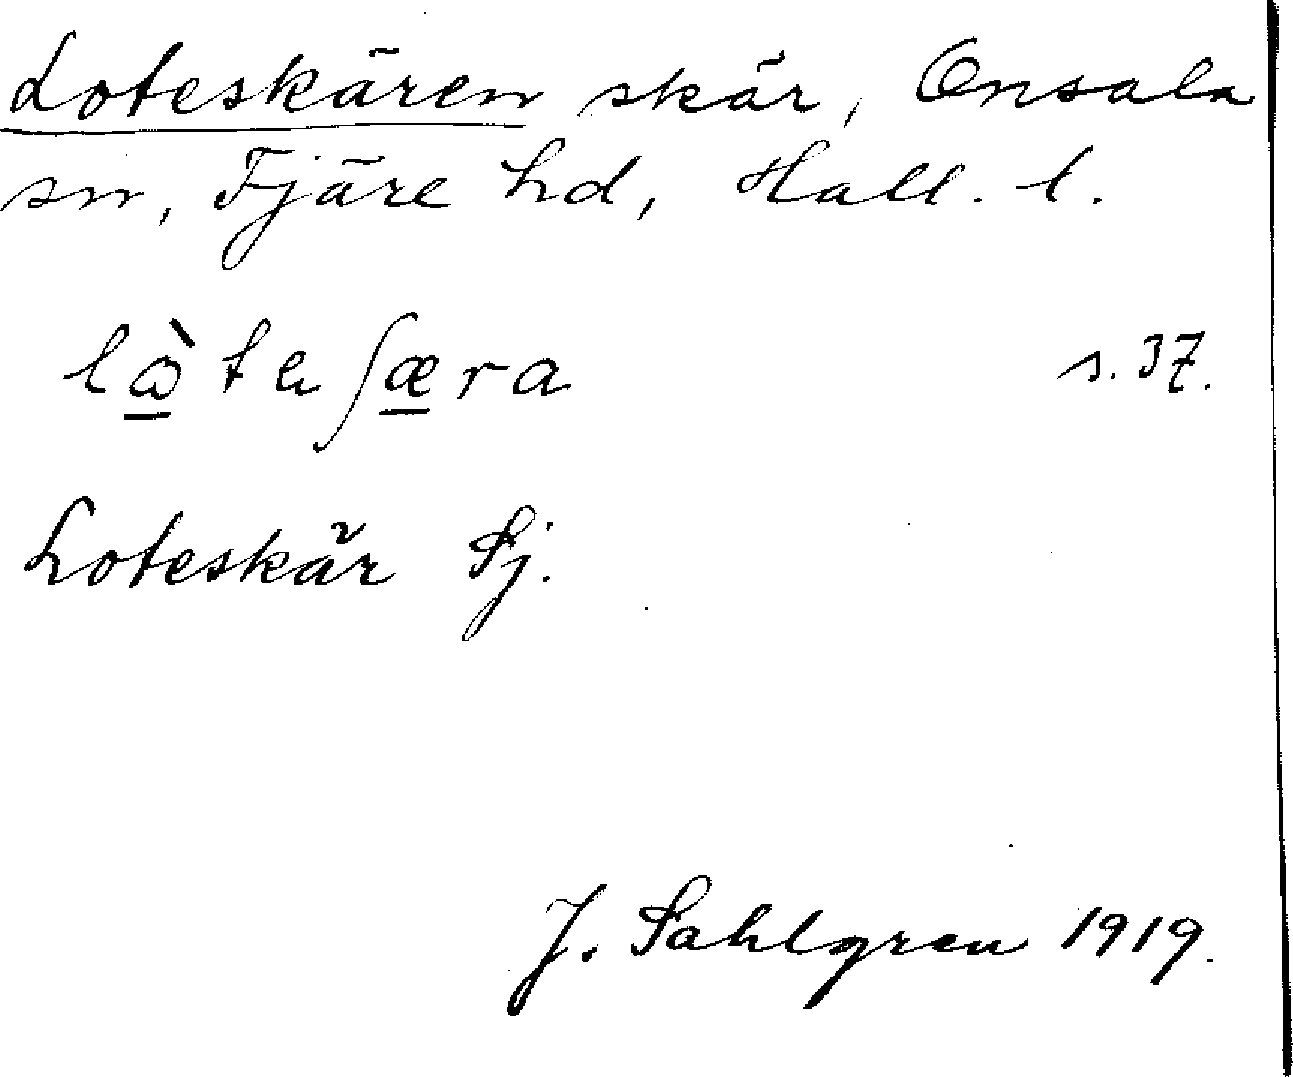 Loteskären skär, Onsala
sn, Fjäre hd, Hall. l.
lò̲teʃæ̲ra s. 37.
Loteskär Sj.
J. Sahlgren 1919.